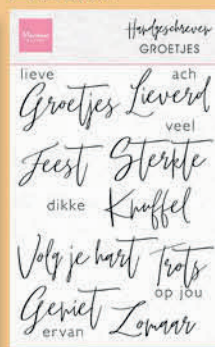 Handgeschreven
GROETJES
lieve
ach
Groetjes
Lieverd
veel
Feest
Sterkte
dikke
Knuffel
Volg je hart
Trots
op jou
Geniet
ervan
Zomaar